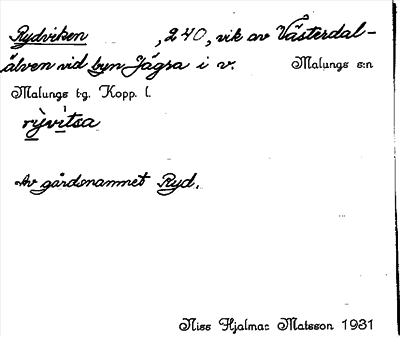 Rydviken , 240, vik av Västerdal-
älven vid byn Jägra i v. Malungs s:n
Malungs t:g. Kopp. l.
rỳvìtsa
Av gårdsnamnet Ryd.
Niss Hjalmar Matsson 1931